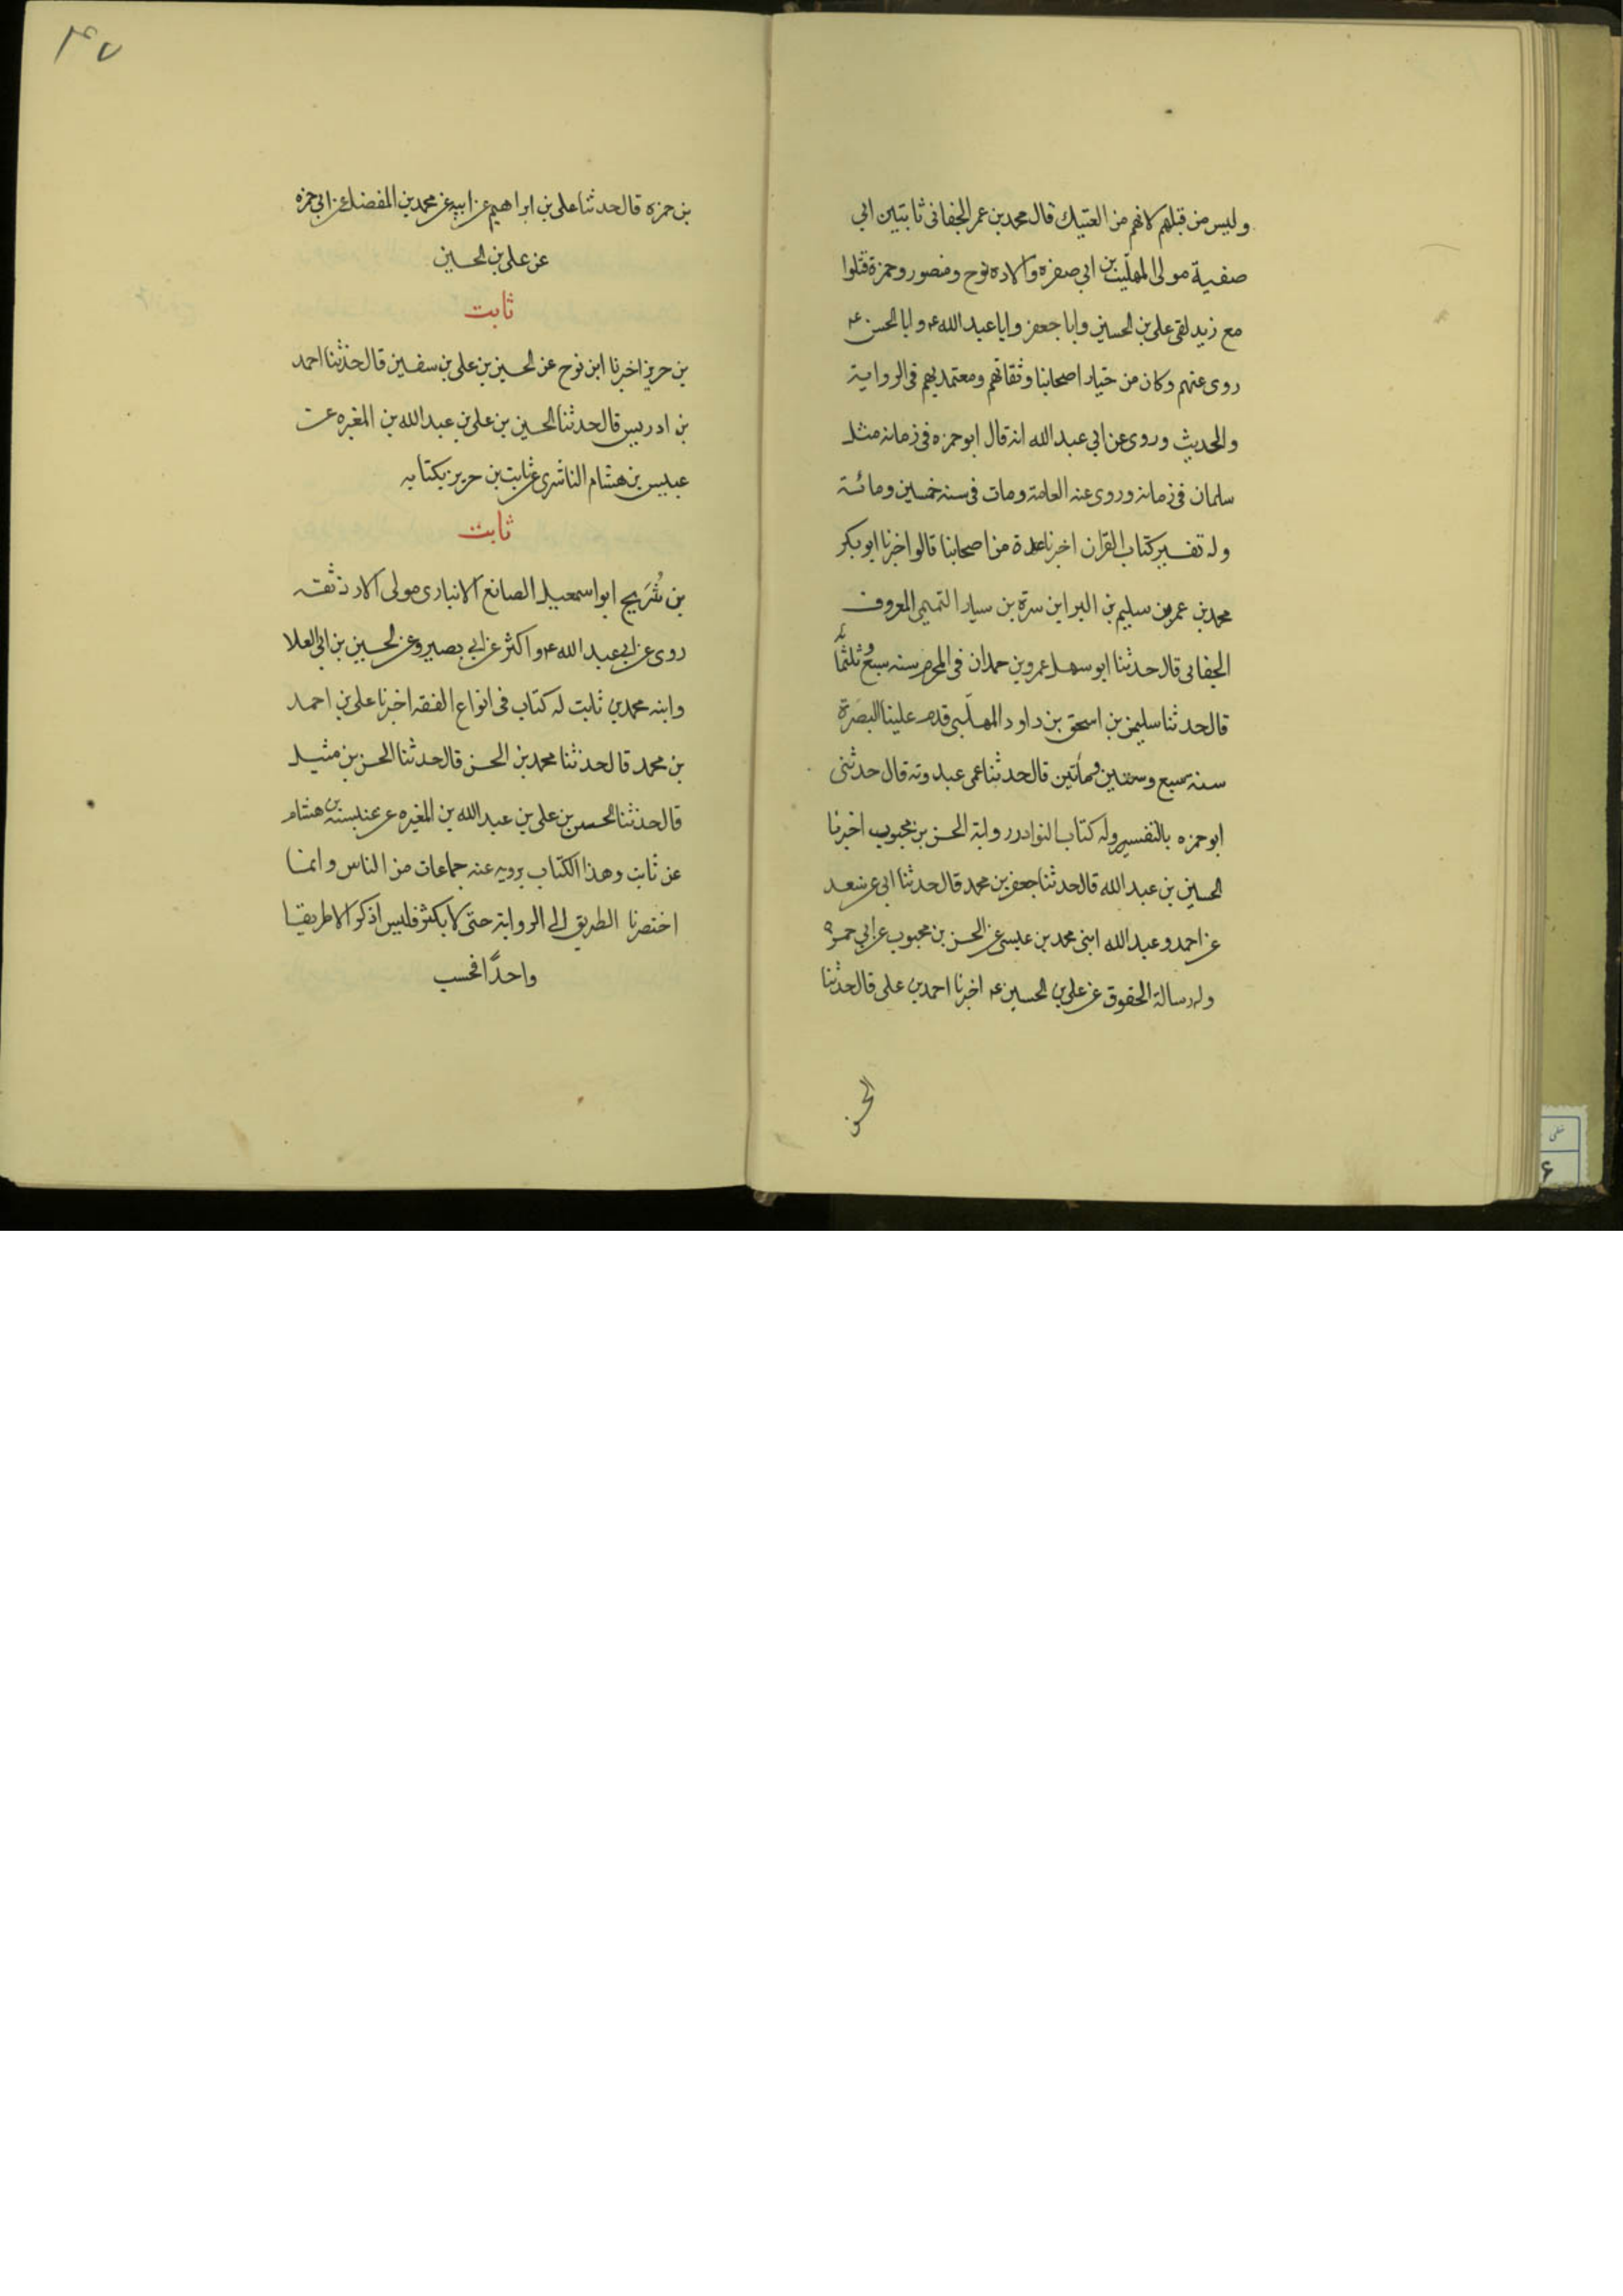 وليس من قبلهم لانهم من العتيك قال محمد بن عمر الجفانى ثابت بن ابى
صفية مولى المهلب بن ابى صفره واولاده نوح ومنصور وحمزة قتلوا
مع زيد لقى على بن الحسين وابا جعفر وابا عبد الله ع وابا الحسن ع
روى عنهم وكان من خيار اصحابنا وثقاتهم ومعتمديهم فى الرواية
والحديث وروى عن ابى عبد الله انه قال ابو حمزه فى زمانه مثل
سلمان فى زمانه وروى عنه العامة ومات فى سنه خمسين ومائة
وله تفسير كتاب القران اخبرنا عدة من اصحابنا قالوا اخبرنا ابو بكر
محمد بن عمر بن سليم بن البر ابن سرة بن سيار التميمى المعروف
الجفابى قال حدثنا ابو سهل عمرو بن حمدان فى المحرم سنه سبع وثلثمائه
قال حدثنا سليمن بن اسحق بن داود المهلبى قدم علينا البصرة
سنة سبع وستين ومأتين قال حدثنا عمى عبد وته قال حدثنى
ابو حمزه بالتفسير وله كتاب النوادر رواية الحسن بن محبوب اخبرنا
الحسين بن عبد الله قال حدثنا جعفر بن محمد قال حدثنا ابى عن سعد
عن احمد وعبد الله ابنى محمد بن عيسى عن الحسن بن محبوب عن ابى حمزه
وله رسالة الحقوق عن على بن الحسين ع اخبرنا احمد بن على قال حدثنا
الحسن
٤٧
بن حمزه قال حدثنا على بن ابراهيم عن ابيه عن محمد بن المفضل عن ابى حمزه
عن على بن الحسين
ثابت
بن حريز اخبرنا ابن نوح عن الحسين بن على بن سفين قال حدثنا احمد
بن ادريس قال حدثنا الحسين بن على بن عبد الله بن المغيره عن
عبيس بن هشام الناشرى عن ثابت بن حريز بكتابه
ثابت
بن شُرَيح ابو اسمعيل الصانع الانبارى مولى الازد ثقة
روى عن ابى عبد الله ع واكثر عن ابى بصير وعن الحسين بن ابى العلا
وابنه محمد بن ثابت له كتاب فى انواع الفقه اخبرنا على بن احمد
بن محمد قال حدثنا محمد بن الحسن قال حدثنا الحسن بن مثيل
قال حدثنا الحسن بن على بن عبد الله بن المغيره عن عنبسة بن هشام
عن ثابت وهذا الكتاب يرويه عنه جماعات من الناس وانما
اختصرنا الطريق الى الرواية حتى لا يكثر فليس اذكر الا طريقا
واحدًا فحسب